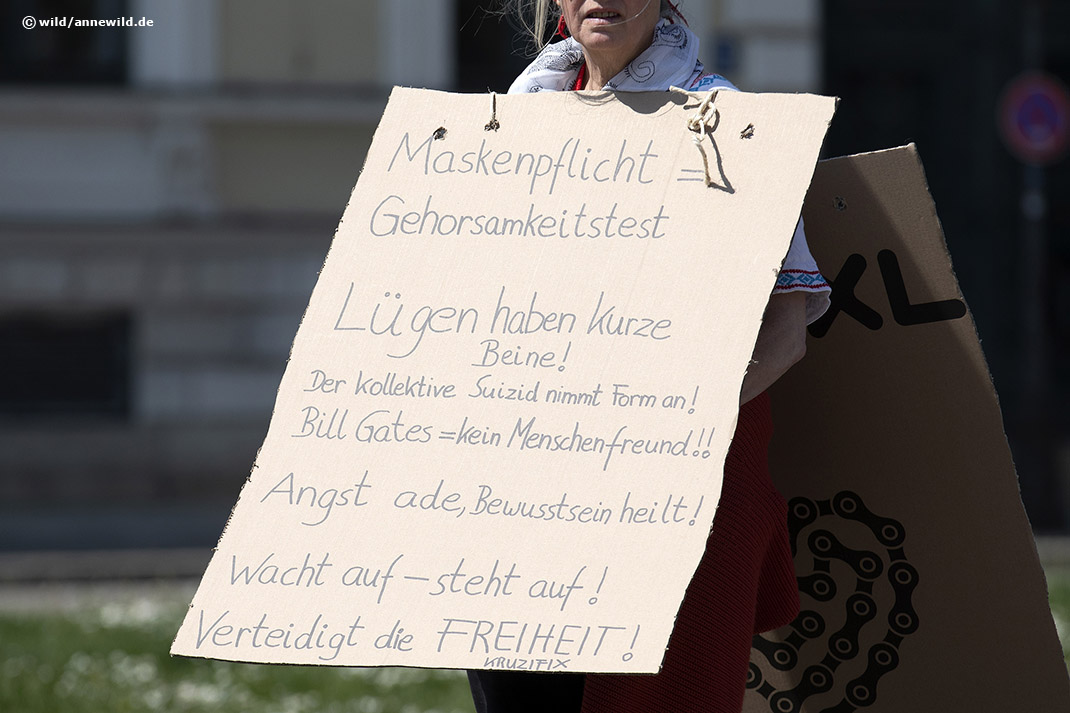 © wild/annewild.de
Maskenpflicht =
Gehorsamkeitstest
Lügen haben kurze
Beine!
Der kollektive Suizid nimmt Form an!
Bill Gates = kein Menschenfreund!!
Angst ade, Bewusstsein heilt!
Wacht auf – steht auf!
Verteidigt die FREIHEIT!
KRUZIFIX
XL